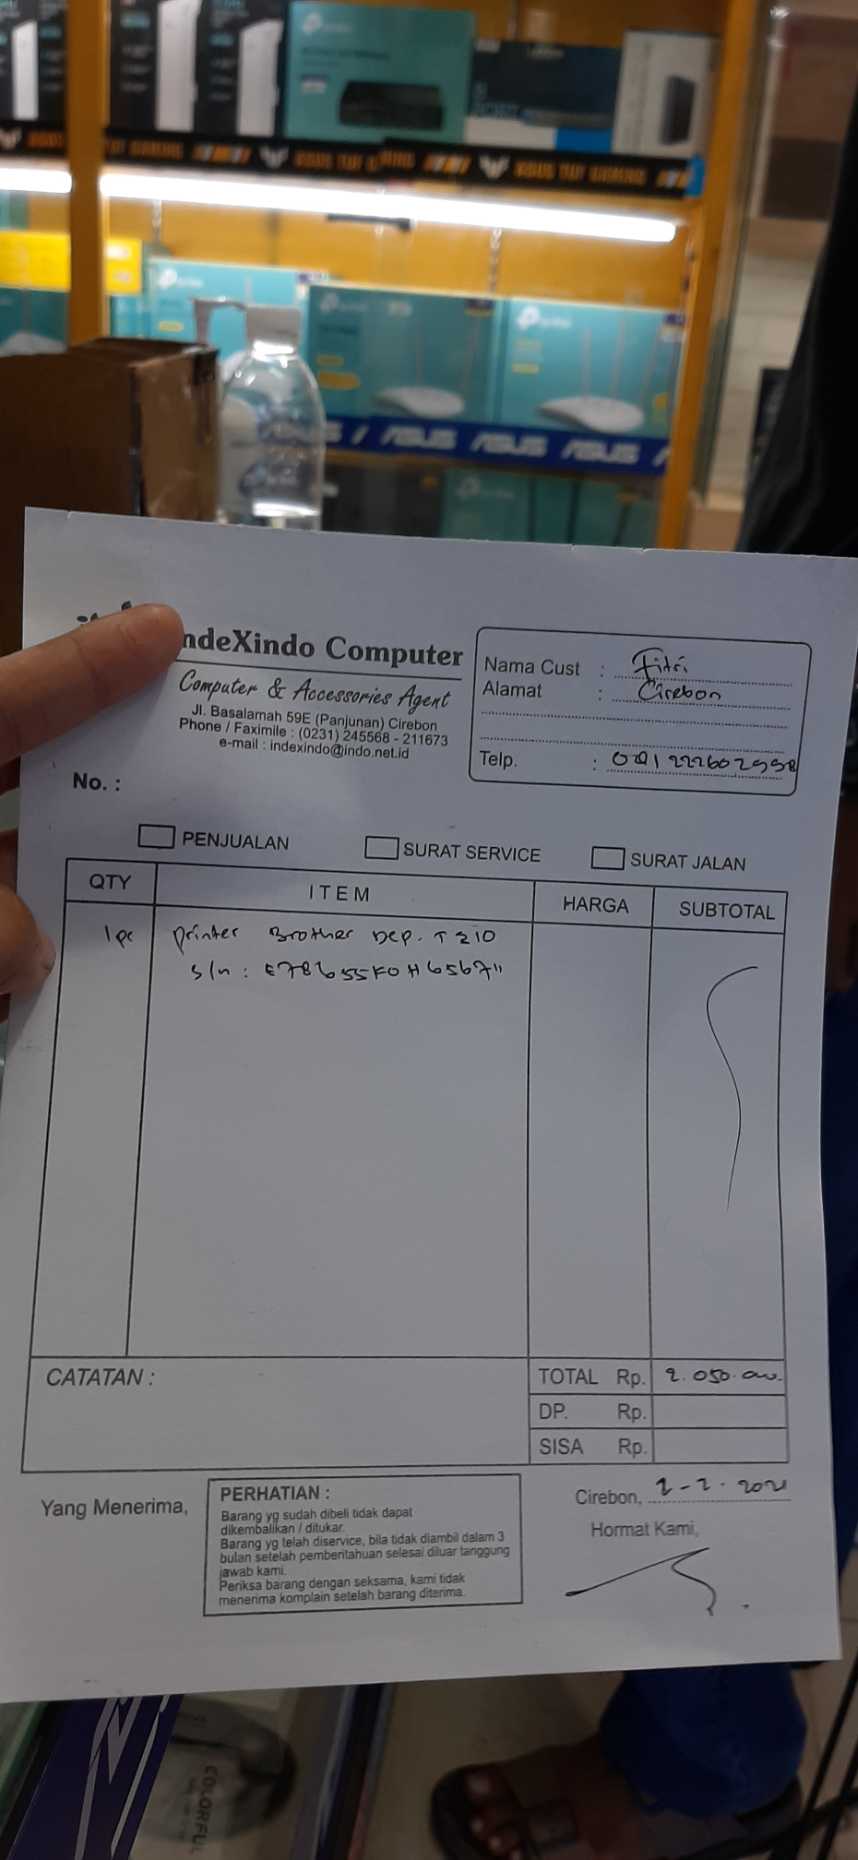 ASUS TUF GAMING
ASUS TUF GAMING
tp-link
ASUS / ASUS ASUS ASUS
ndeXindo Computer
Computer & Accessories Agent
Jl. Basalamah 59E (Panjunan) Cirebon
Phone / Faximile : (0231) 245568 - 211673
e-mail : indexindo@indo.net.id
Nama Cust : Fitri
Alamat : Cirebon
Telp. :
No. :
PENJUALAN SURAT SERVICE SURAT JALAN
QTY ITEM HARGA SUBTOTAL
1 pc Printer Brother Dcp. T 310
s/n :
CATATAN :
TOTAL Rp. 2.050.000.
DP. Rp.
SISA Rp.
Yang Menerima,
PERHATIAN :
Barang yg sudah dibeli tidak dapat
dikembalikan / ditukar.
Barang yg telah diservice, bila tidak diambil dalam 3
bulan setelah pemberitahuan selesai diluar tanggung
jawab kami.
Periksa barang dengan seksama, kami tidak
menerima komplain setelah barang diterima.
Cirebon, 2-2-2021
Hormat Kami,
COLORFUL